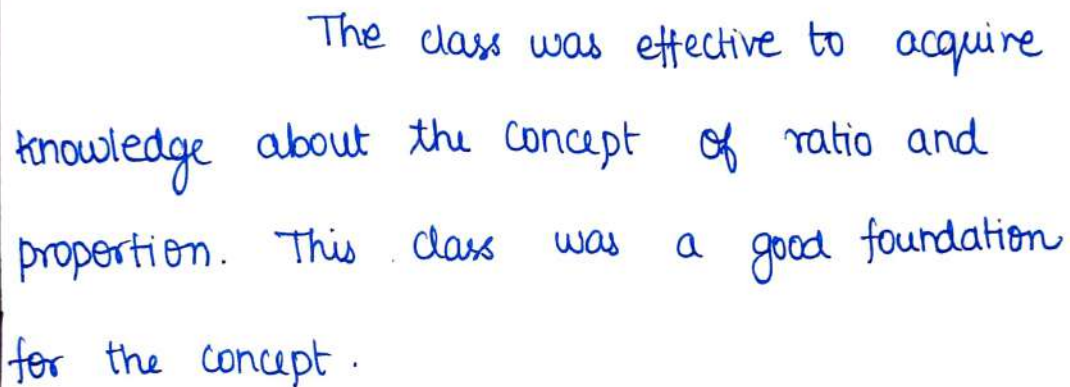 The class was effective to acquire
knowledge about the concept of ratio and
proportion. This class was a good foundation
for the concept.